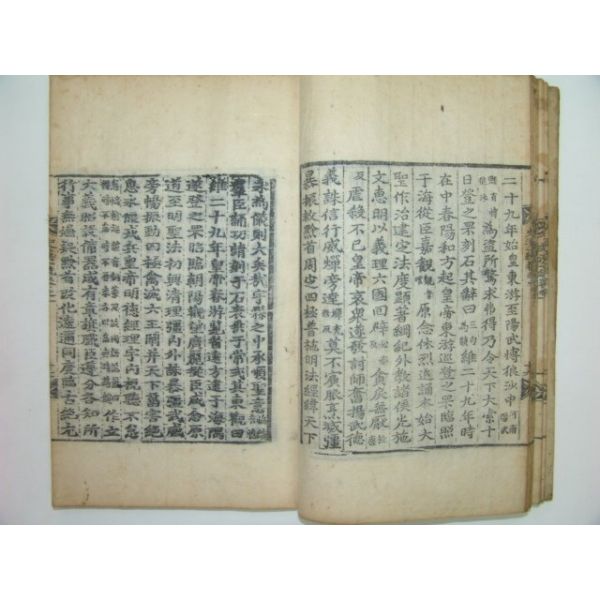 二十九年始皇東游至陽武博狼沙中 河南陽武
縣有博狼沙 爲盜所驚求弗得乃令天下大索十
日登之罘刻石其辭曰 維二十九年時
在中春陽和方起皇帝東游巡登之罘臨照
于海從臣嘉觀 原念休烈追誦本始大
聖作治建定法度顯著綱紀外教諸侯光施
文惠明以義理六國回辟 貪戾無厭
虐殺不已皇帝哀衆遂發討師奮揚武德
義誅信行威燀旁達 莫不賓服烹滅彊
暴振救黔首周定四極普施明法經緯天下
永爲儀則大矣哉宇縣之中承順聖意
羣臣誦功請刻于石表垂于常式其東觀曰
維二十九年皇帝春游覽省遠方逮于海隅
遂登之罘昭臨朝陽觀望廣麗從臣咸念原
道至明聖法初興清理疆内外誅暴彊武威
旁暢振動四極禽滅六王闡并天下甾害絶
息永偃戎兵皇帝明德經理宇内視聽不怠
作立
大義昭設備器咸有章旗職臣遵分各知所
行事無嫌疑黔首改化遠邇同度臨古絶尤